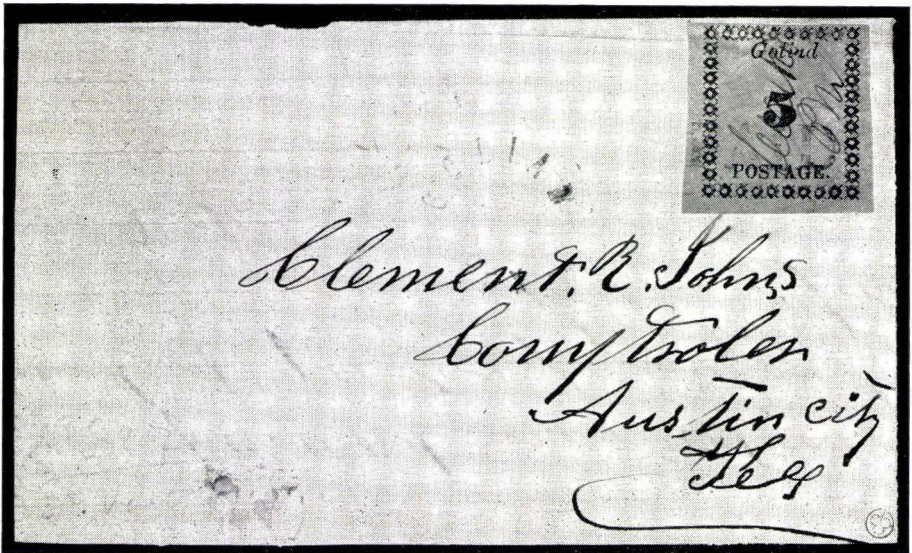 Gotind
5
POSTAGE.
Clement. R. Johns
Comptroler
Austin City
Tex